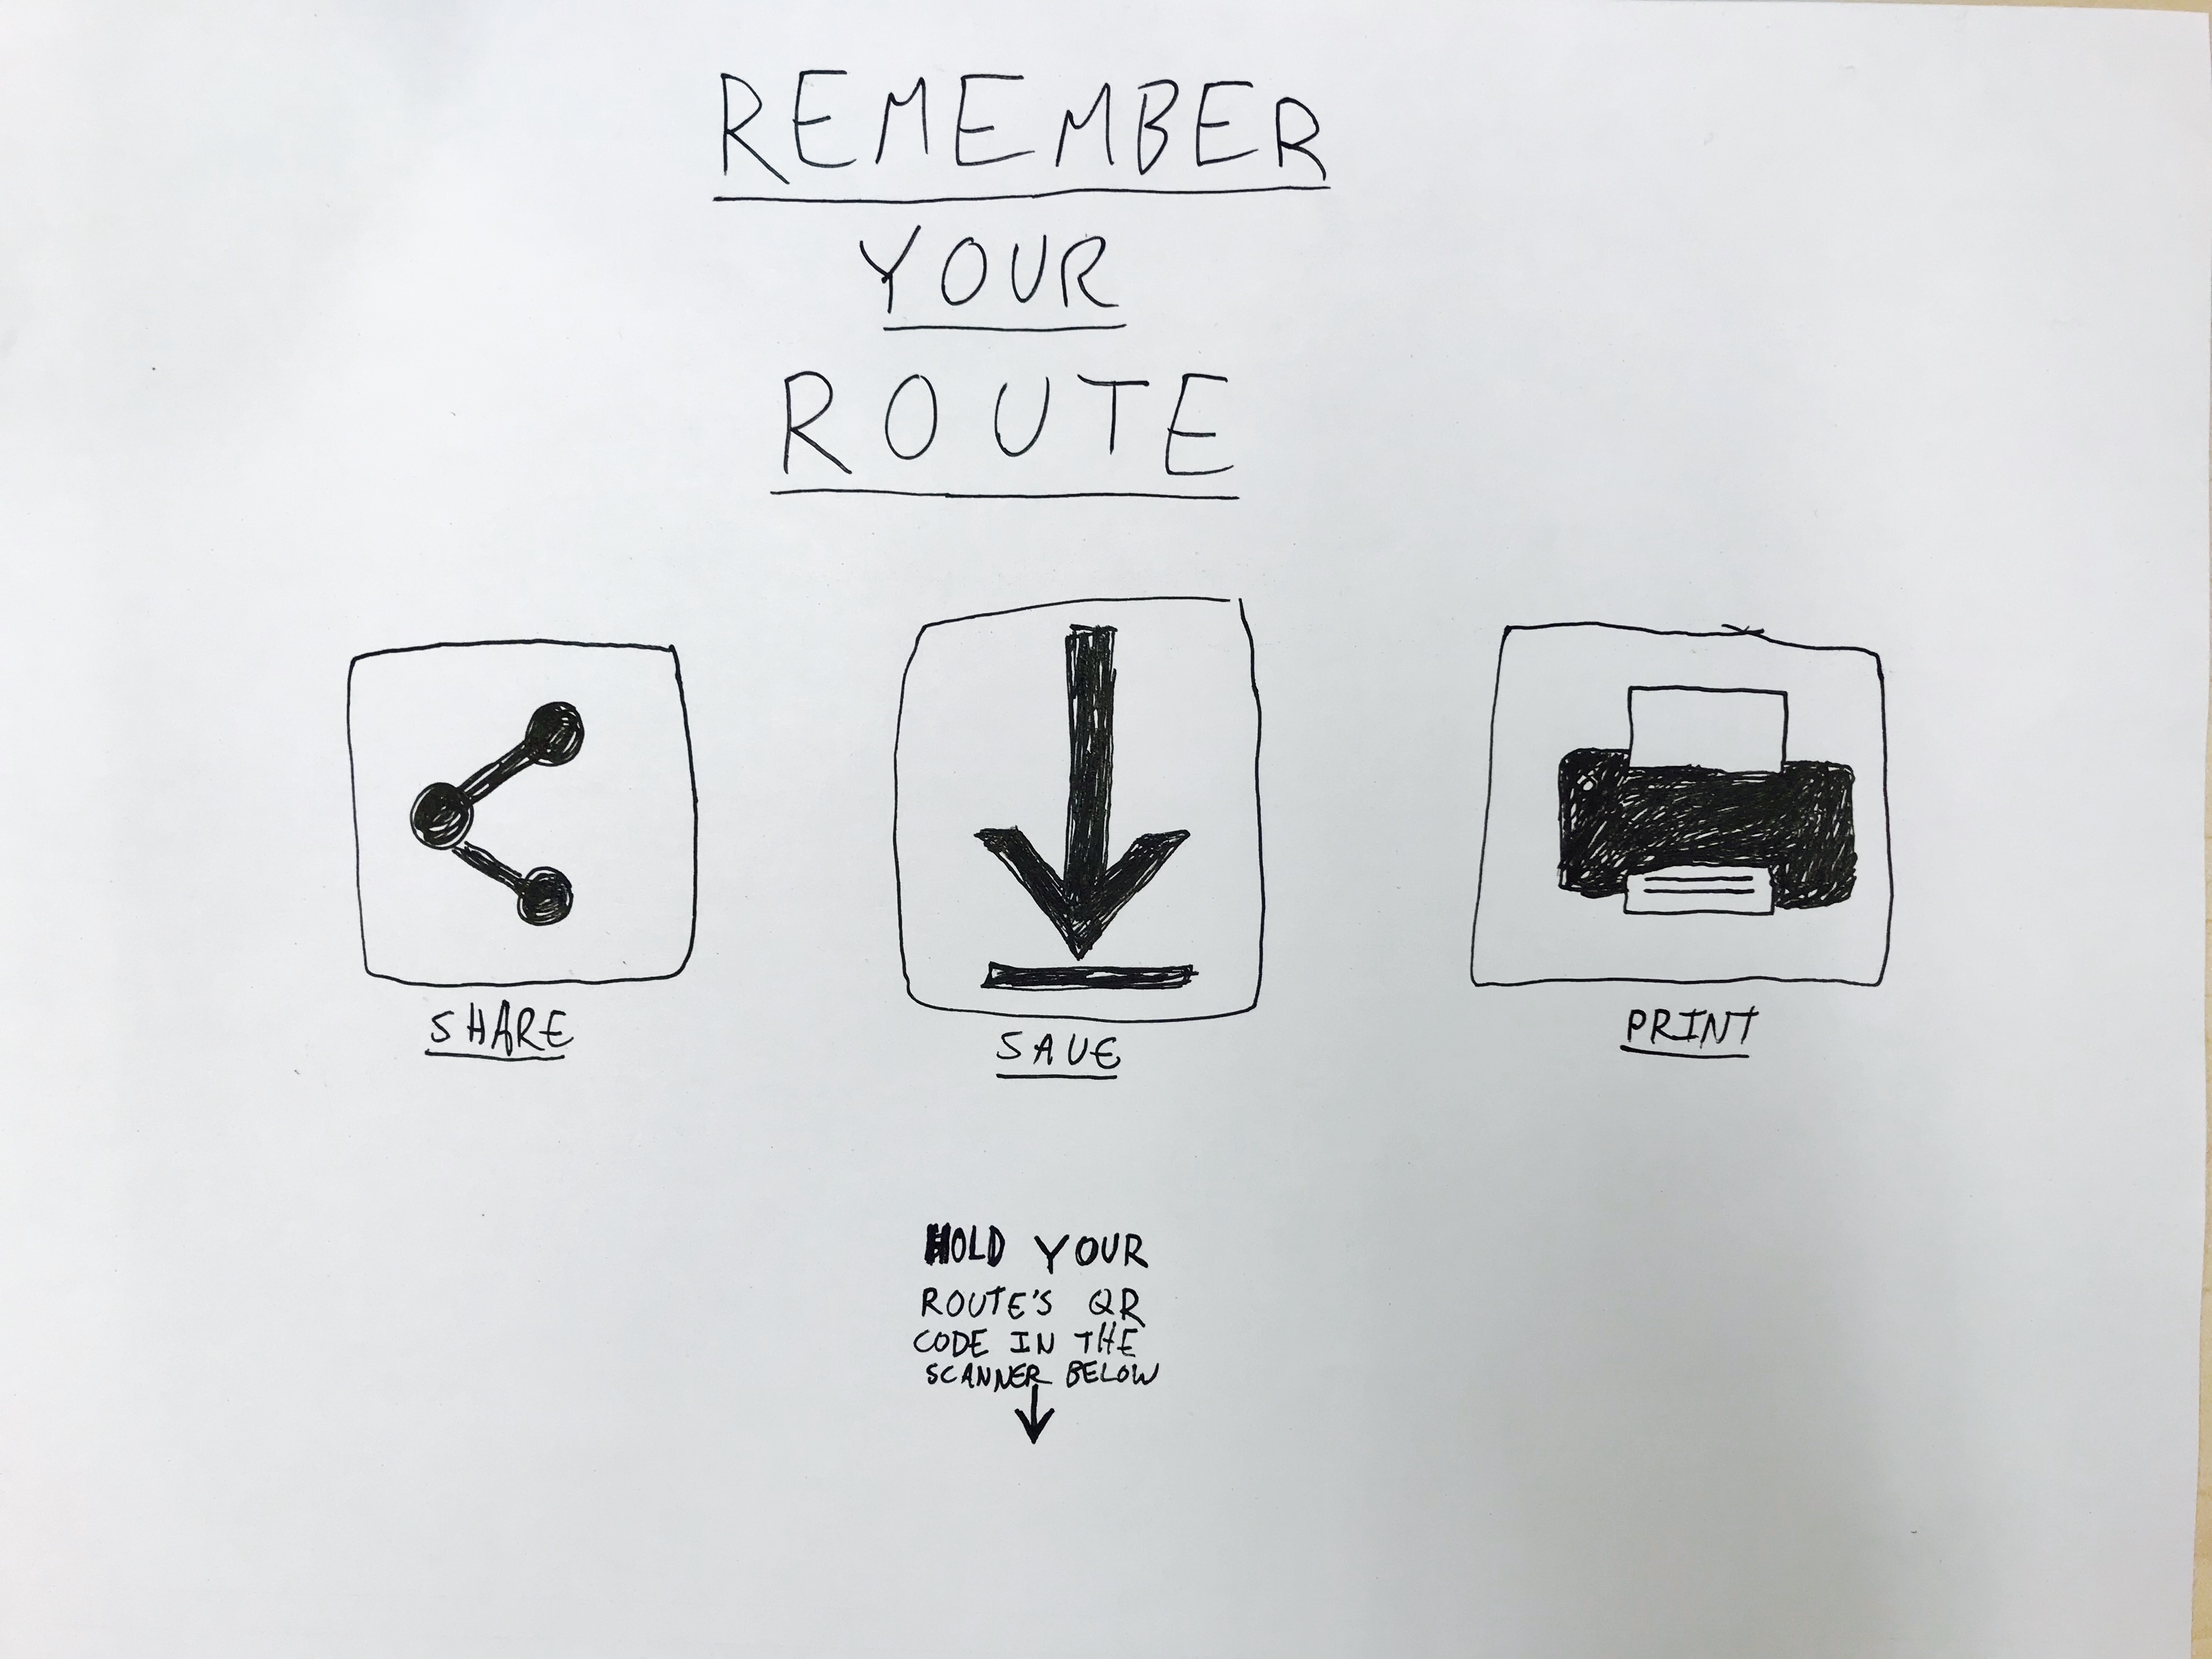 REMEMBER
YOUR
ROUTE
SHARE
SAVE
PRINT
HOLD YOUR
ROUTE'S QR
CODE IN THE
SCANNER BELOW